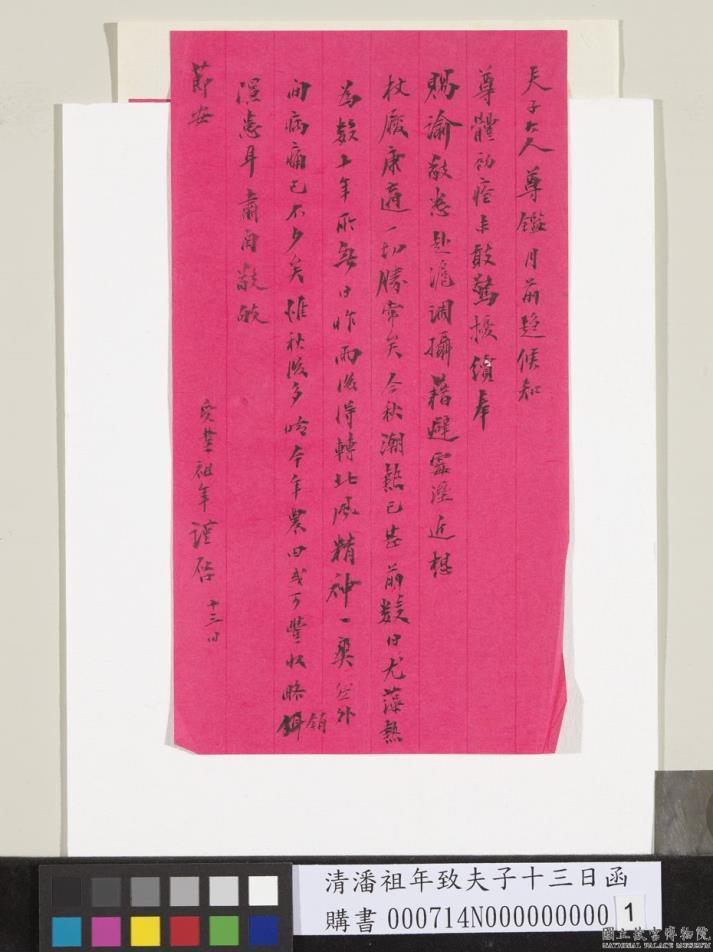 夫子大人尊鑑月前趨候知
尊體初痊未敢驚擾續奉
賜諭敬悉赴滬調攝藉避霉溼近想
杖履康適一切勝常矣今秋潮熱已甚前數日尤藻熱
為數上年所無日昨雨後得轉北風精神一爽然外
間病痛已不少矣惟秋後多晴今年農田或可豐收略
銷
溼患耳肅自敬敂
節安
受業祖年謹啓
十三日
清潘祖年致夫子十三日函
購書 000714N000000000
1
國立故宮博物院
NATIONAL PALACE MUSEUM